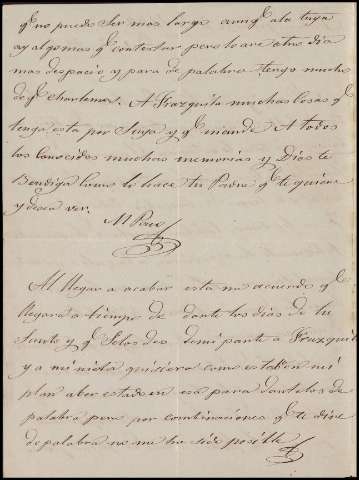 qᵉ no puedo ser mas largo aunqᵉ a la tuya
ay algo mas qᵉ contestar pero lo are otro dia
mas despacio y para de palabra tengo mucho
de qᵉ charlemos. A Frazquita muchas cosas qᵉ
tenga esta por Suya y qᵉ mande A todos
los Conocidos muchas memorias y Dios te
Bendiga como lo hace tu Padre qᵉ te quiere
y desea ver.
M Pou
Al llegar a acabar esta me acuerdo qᵉ
llegara a tiempo de darte los dias de tu
Santo y qᵉ Selos des demi parte a Frazquita
y a mi nieta quisiera como estaba en mi
plan aber estado en esa para dartelos de
palabra pero por combinaciones qᵉ te dire
de palabra no me ha sido posible